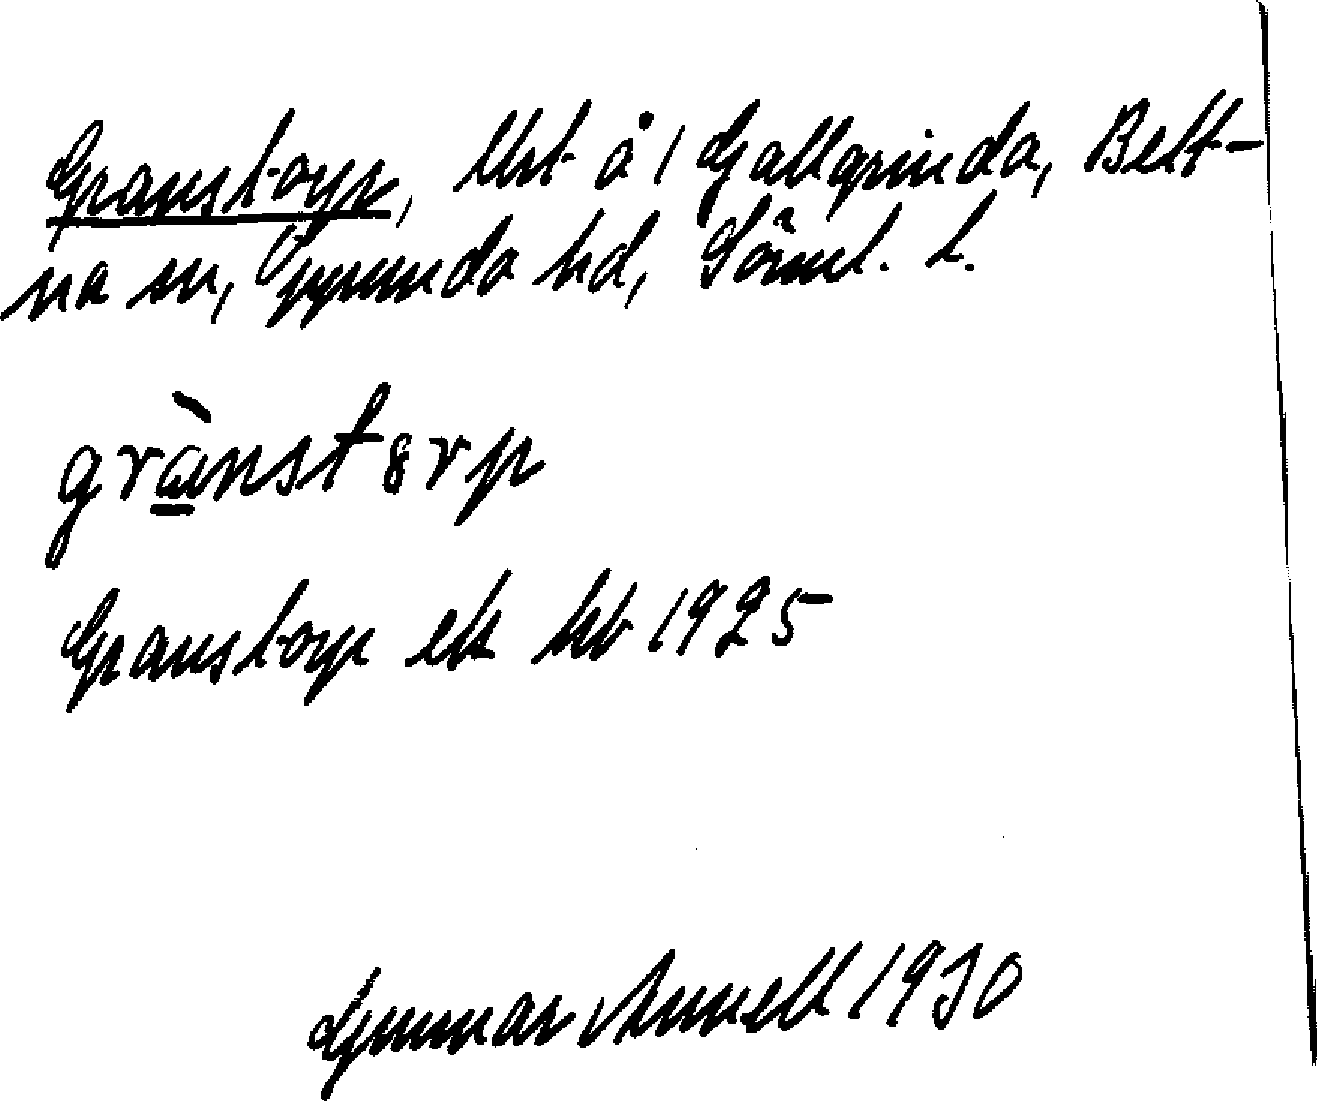 Granstorp, lht å 1 Gallgrinda, Bett-
na sn, Oppunda hd, Söml. l.
grànstørp
Granstorp ek kb 1925
Gunnar Annell 1930